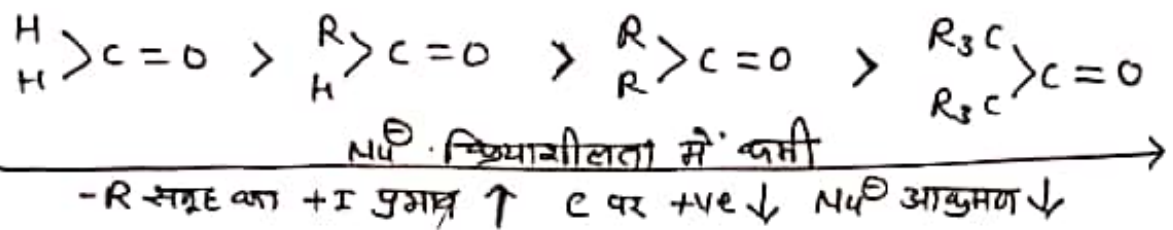 H
H >C=O > R
H >C=O > R
R >C=O > R₃C
R₃C >C=O
Nu⊖ क्रियाशीलता में कमी
-R समूह का +I प्रभाव ↑ C पर +ve ↓ Nu⊖ आक्रमण ↓